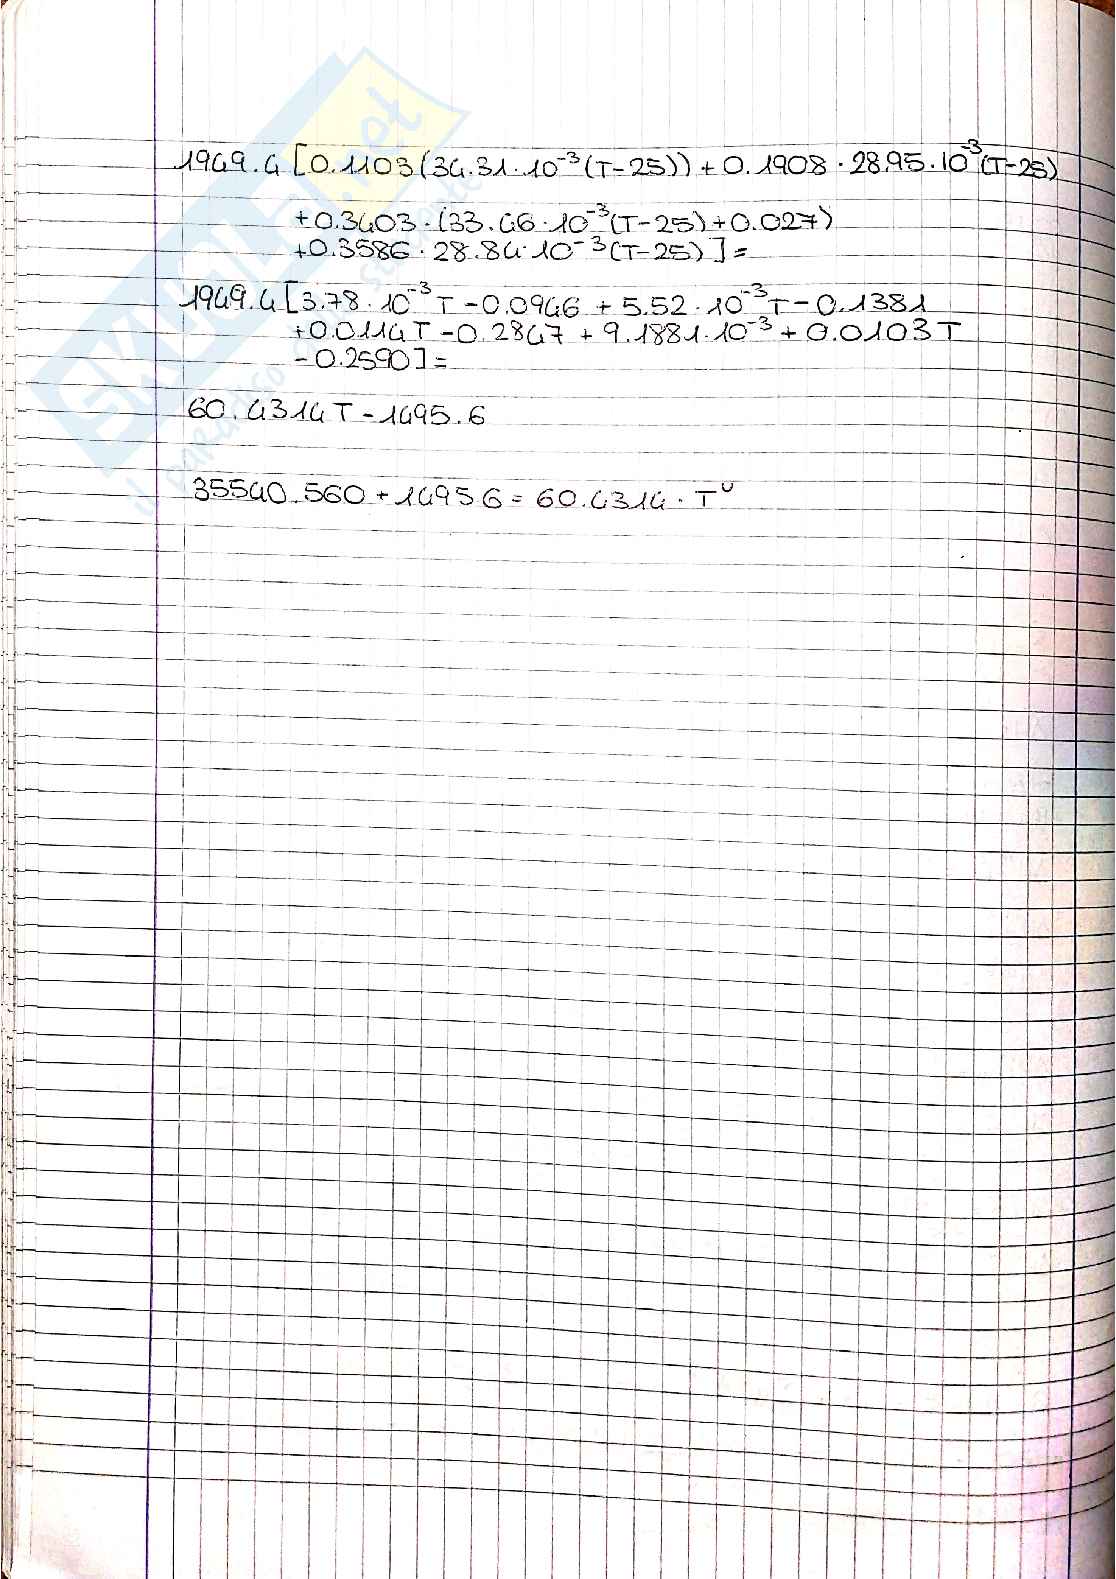 1949.4 [0.1103(34.31·10⁻³(T-25)) + 0.1908·28.95·10⁻³(T-25)
+0.3403·(33.46·10⁻³(T-25)+0.027)
+0.3586·28.84·10⁻³(T-25)]=
1949.4[3.78·10⁻³T-0.0946+5.52·10⁻³T-0.1381
+0.0114T-0.2847+9.1881·10⁻³+0.0103T
-0.2590]=
60.4314T-1495.6
35540.560+14956=60.4314·Tᵁ
skuola.net
il paradiso